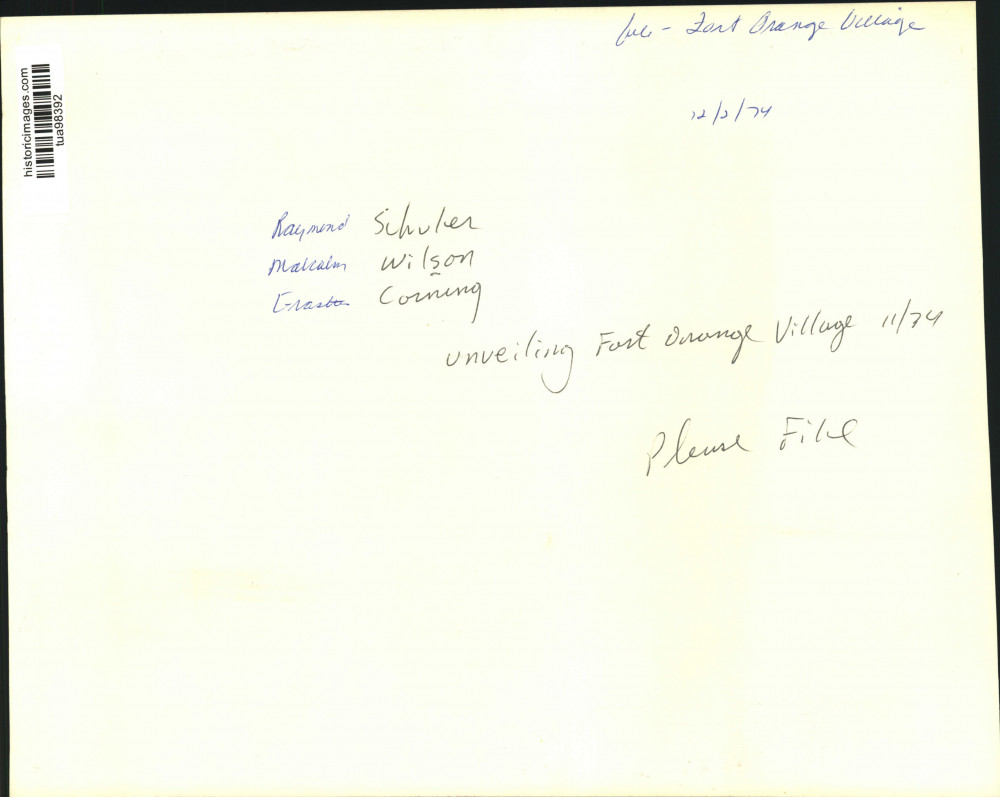 file - Fort Orange Village
12/2/74
historicimages.com
tua98392
Raymond Schuler
Malcolm Wilson
Erastus Corning
unveiling Fort Orange Village 11/74
Please File